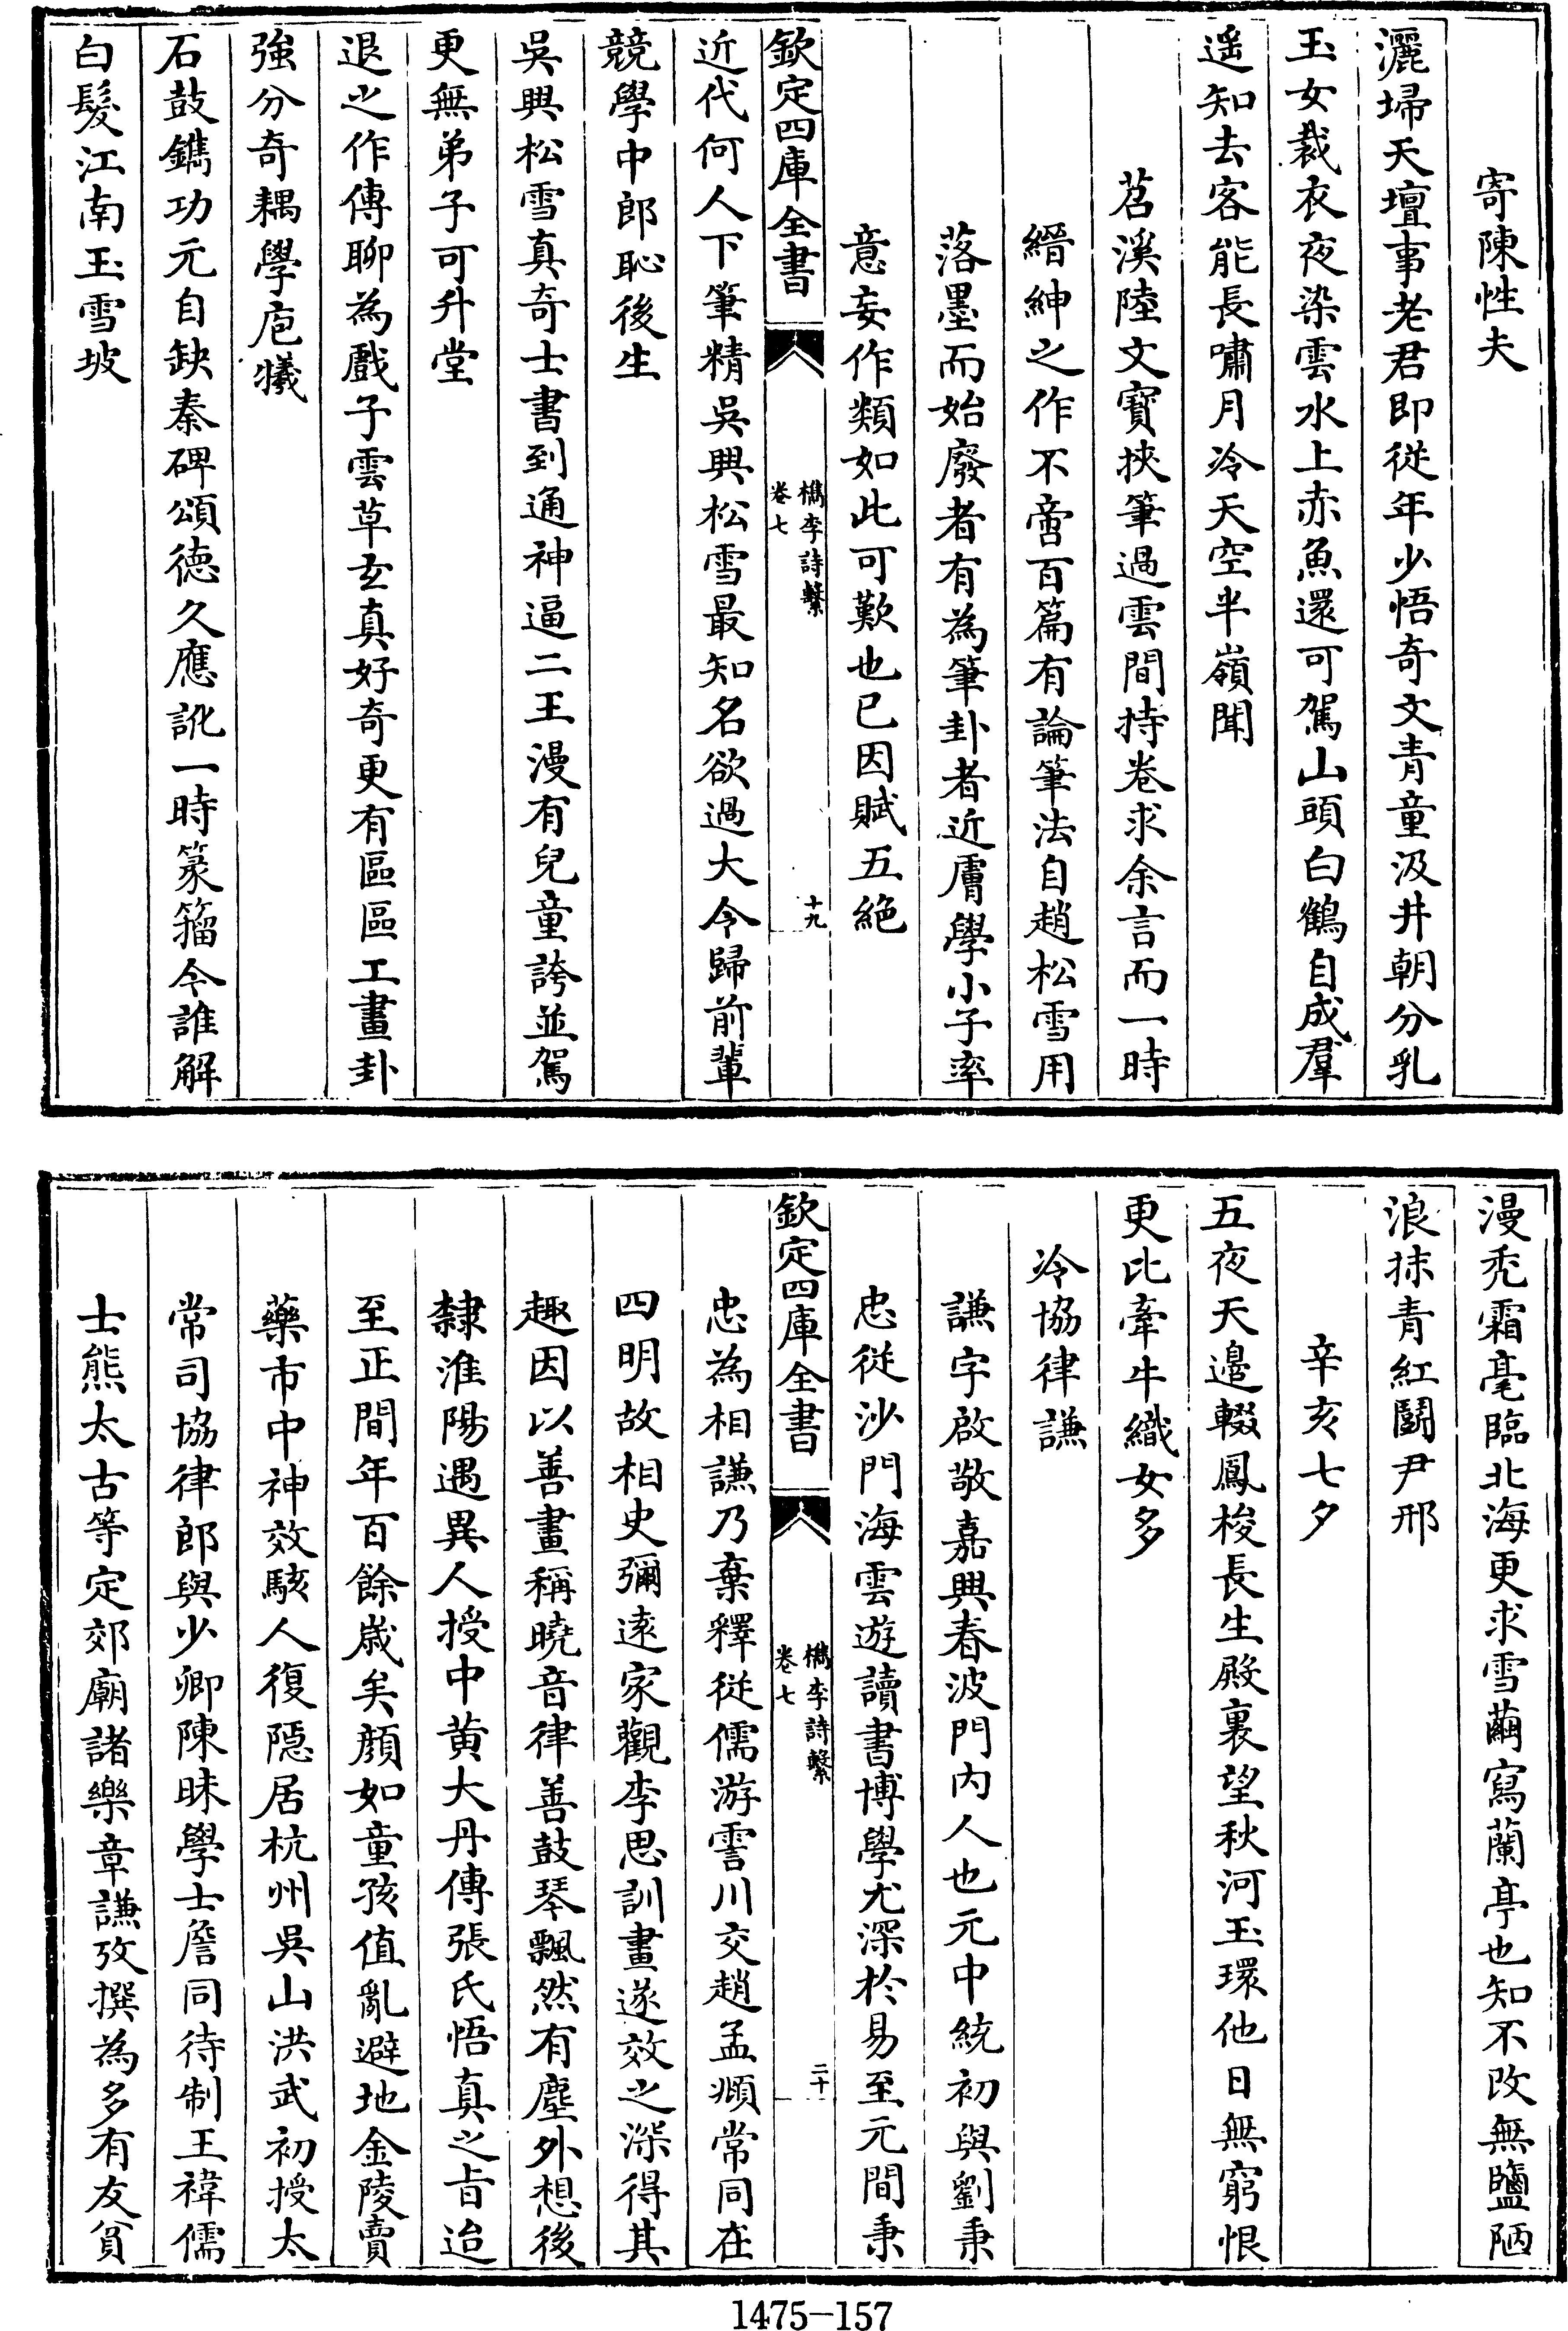 寄陳性夫
灑埽天壇事老君即從年少悟奇文青童汲井朝分乳
玉女裁衣夜染雲水上赤魚還可駕山頭白鶴自成羣
遥知去客能長嘯月冷天空半嶺聞
苕溪陸文寳挾筆過雲間持卷求余言而一時
縉紳之作不啻百篇有論筆法自趙松雪用
落墨而始廢者有為筆卦者近膚學小子率
意妄作類如此可歎也已因賦五絶
欽定四庫全書
檇李詩繫
卷七
十九
近代何人下筆精吳興松雪最知名欲過大令歸前輩
競學中郎恥後生
吳興松雪真奇士書到通神逼二王漫有兒童誇並駕
更無弟子可升堂
退之作傳聊為戲子雲草玄真好奇更有區區工畫卦
強分奇耦學庖犧
石鼓鐫功元自缺秦碑頌德久應訛一時篆籀今誰解
白髮江南玉雪坡
漫禿霜毫臨北海更求雪繭寫蘭亭也知不改無鹽陋
浪抹青紅鬭尹邢
辛亥七夕
五夜天邉輟鳳梭長生殿裏望秋河玉環他日無窮恨
更比牽牛織女多
冷協律謙
謙字啟敬嘉興春波門内人也元中統初與劉秉
忠從沙門海雲遊讀書博學尤深於易至元間秉
欽定四庫全書
檇李詩繫
卷七
二十
忠為相謙乃棄釋從儒游霅川交趙孟頫常同在
四明故相史彌遠家觀李思訓畫遂效之深得其
趣因以善畫稱曉音律善鼓琴飄然有塵外想後
隸淮陽遇異人授中黄大丹傳張氏悟真之旨迨
至正間年百餘歲矣顔如童孩值亂避地金陵賣
藥市中神效駭人復隱居杭州吳山洪武初授太
常司協律郎與少卿陳昧學士詹同待制王禕儒
士熊太古等定郊廟諸樂章謙攷撰為多有友貧
1475-157